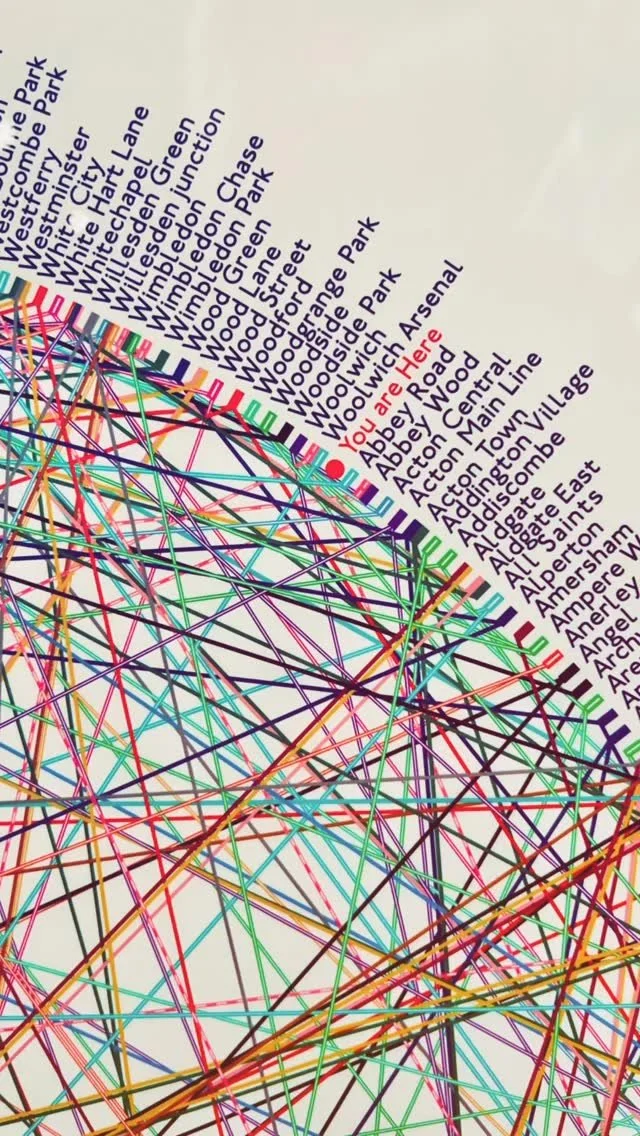 Park
estcombe Park
Westferry
Westminster
White City
White Hart Lane
Whitechapel
Willesden Green
Willesden junction
Wimbledon
Wimbledon Chase
Wimbledon Park
Wood Green
Wood Lane
Wood Street
Woodford
Woodgrange Park
Woodside
Woodside Park
Woolwich
Woolwich Arsenal
You are Here
Abbey Road
Abbey Wood
Acton Central
Acton Main Line
Acton Town
Addington Village
Addiscombe
Aldgate
Aldgate East
All Saints
Alperton
Amersham
Ampere W
Anerley
Angel
Arch